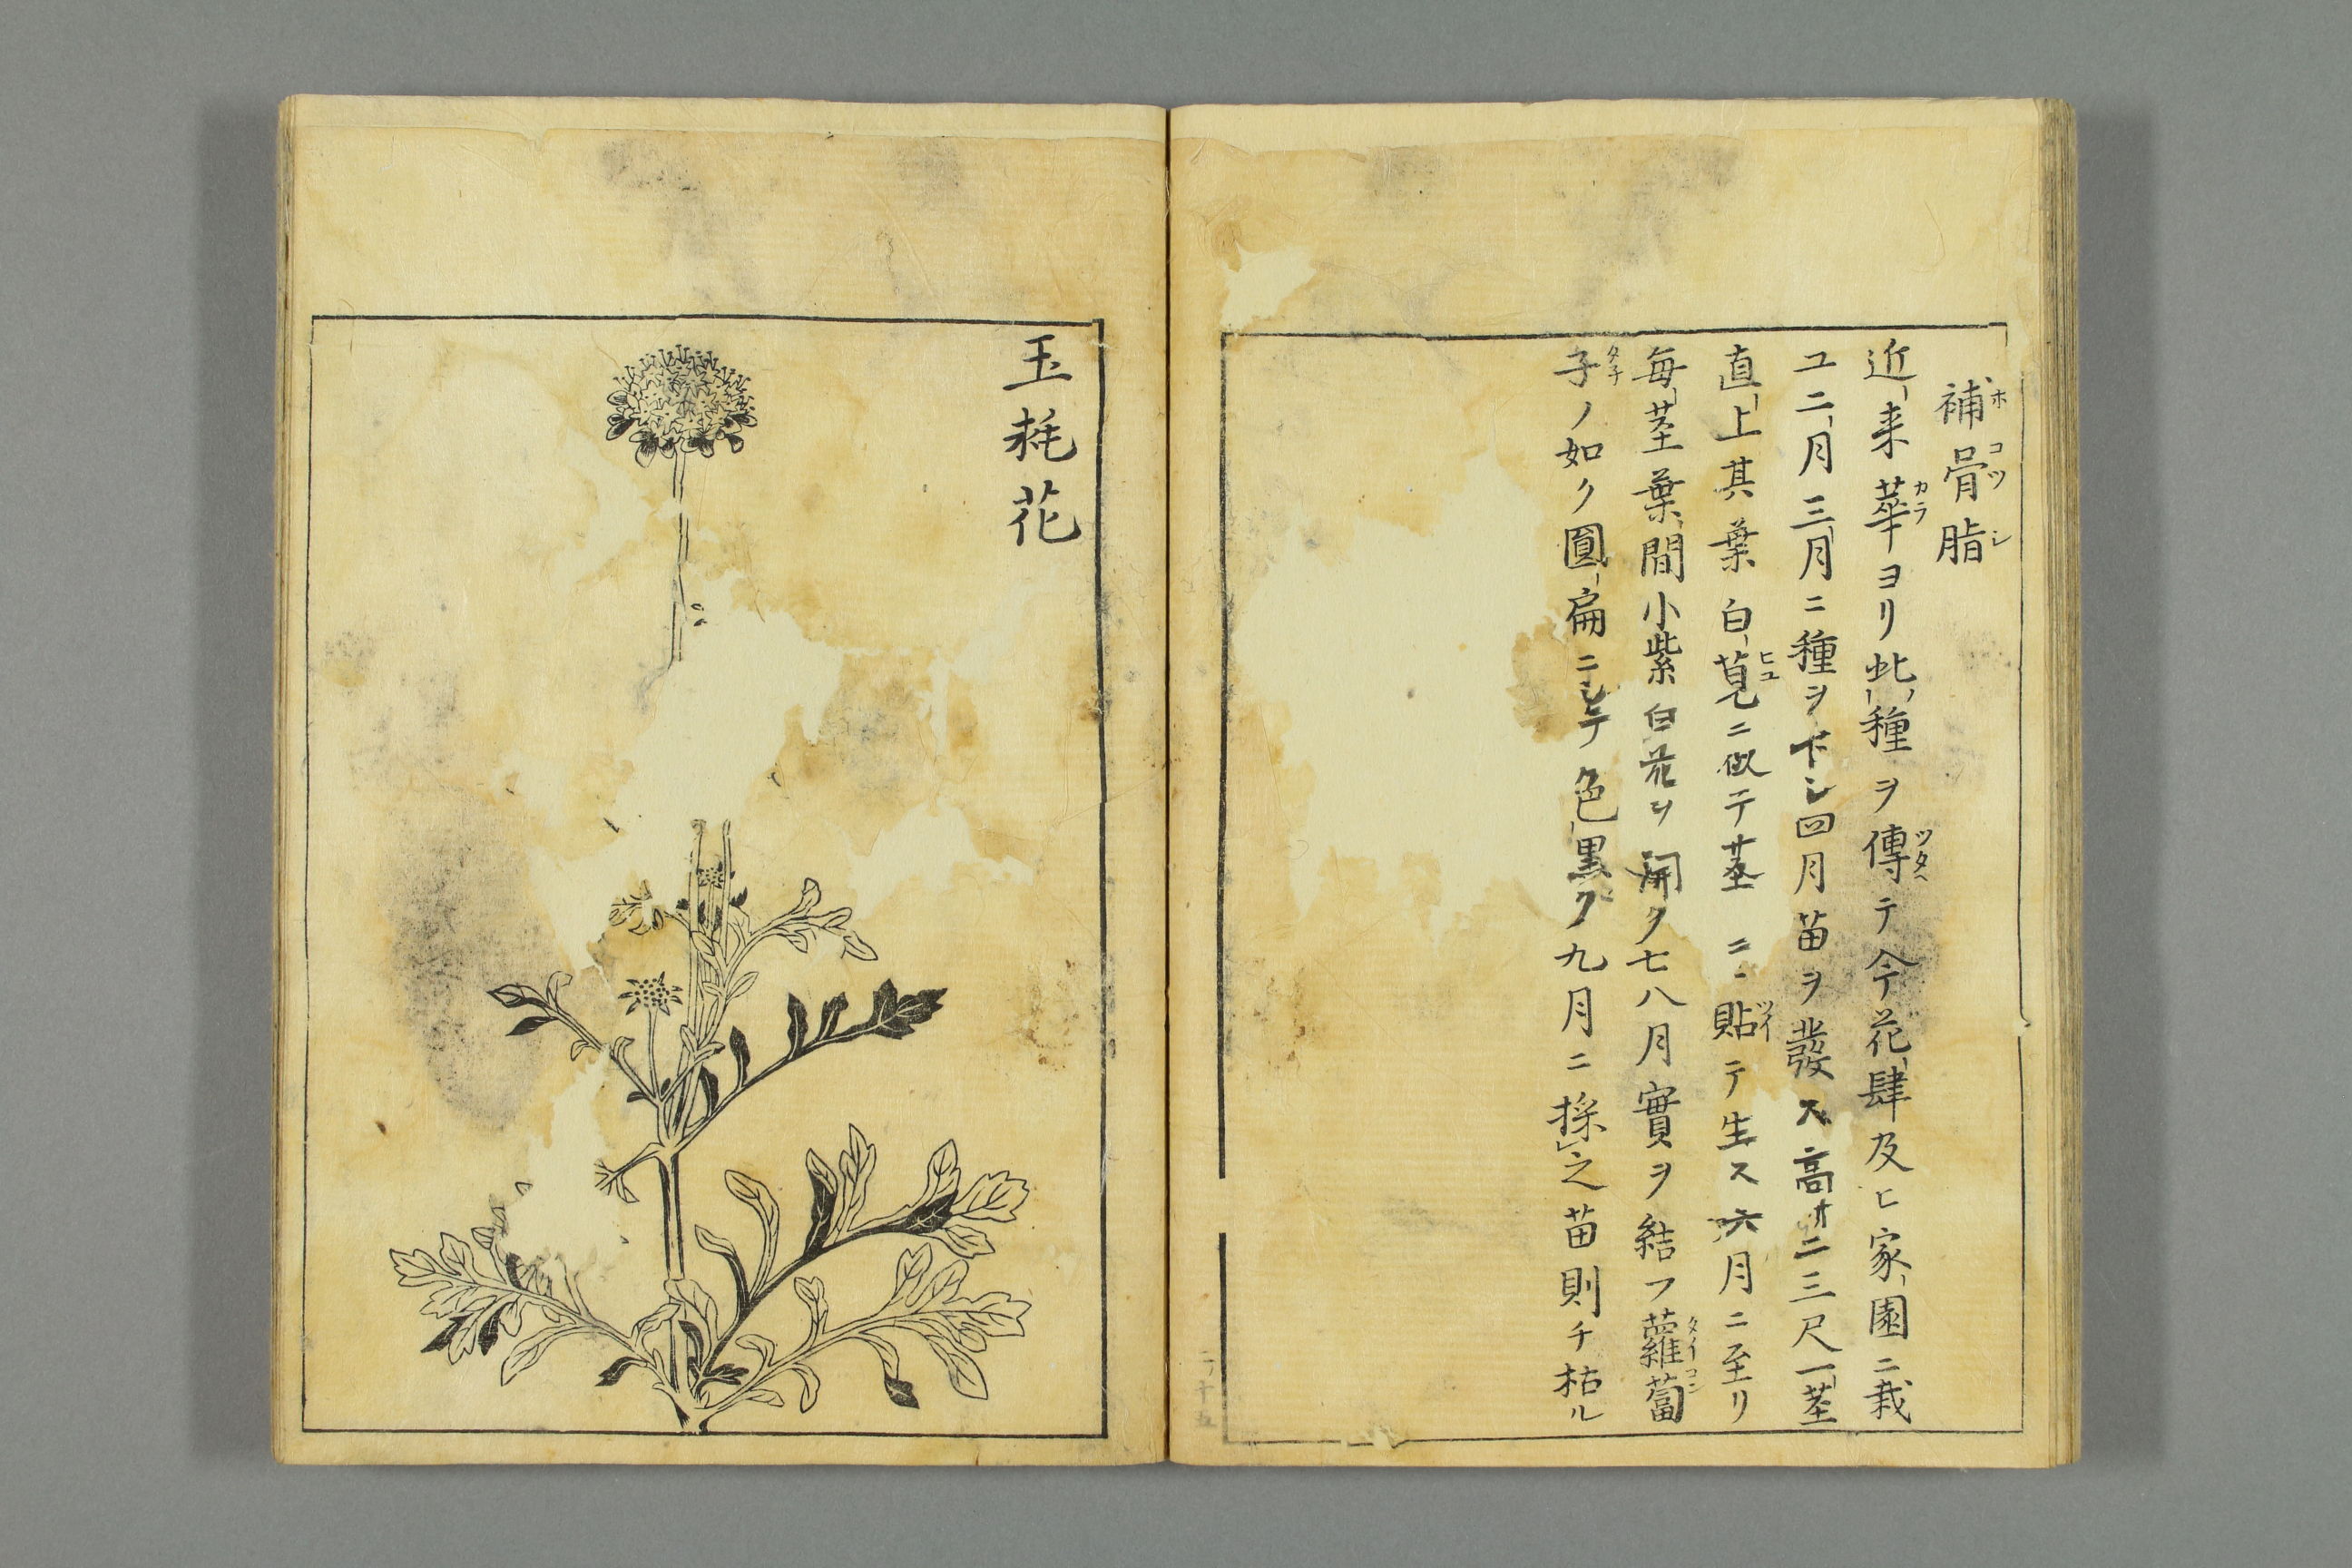 補骨脂
近来華ヨリ此種ヲ傳テ今花肆及ヒ家園ニ栽
ユ二月三月ニ種ヲ下シ四月苗ヲ發ス高サ二三尺一莖
直上其葉白莧ニ似テ莖ニ貼テ生ス六月ニ至リ
毎莖葉間小紫白花ヲ開ク七八月實ヲ結フ蘿蔔
子ノ如ク圓扁ニシテ色黒ク九月ニ採之苗則チ枯ル
玉毦花